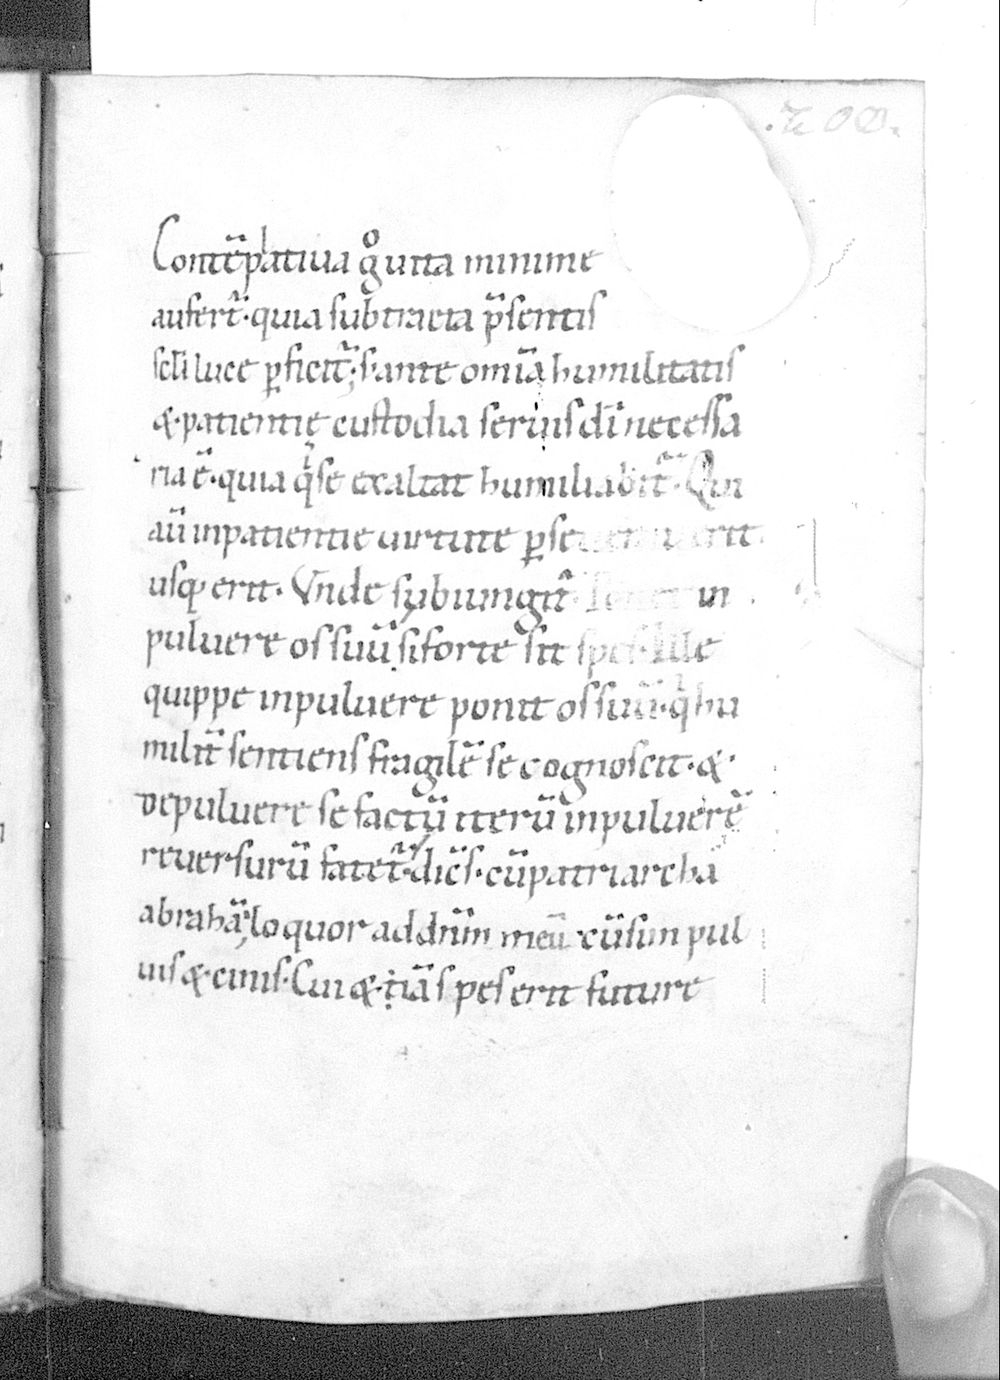 .200.
Contẽplatiua g̊ uita minime
aufert̃·quia subtracta p̃sentis
scłi luce ꝑficit̃; s· ante omĩa humilitatis
&·patientie custodia seruis dĩ necessa
ria ẽ·quia qͥ se exaltat humiliabit̃·Qui
aũ inpatientie uirtute ꝑseuerauerit
usq· erit· Vnde subiungit̃· Ponet in
puluere os suũ si forte sit spes·Ille
quippe inpuluere ponit os suũ·qͥ hu
milit̃ sentiens fragilẽ se cognoscit·&·
depuluere se factũ iterũ inpuluerẽ
reuersurũ fatet̃·dic̃s·cũ patriarchã
abrahã; loquor ad dñm meũ cũ sim pul
uis &·cinis·Cui &·iã spes erit future